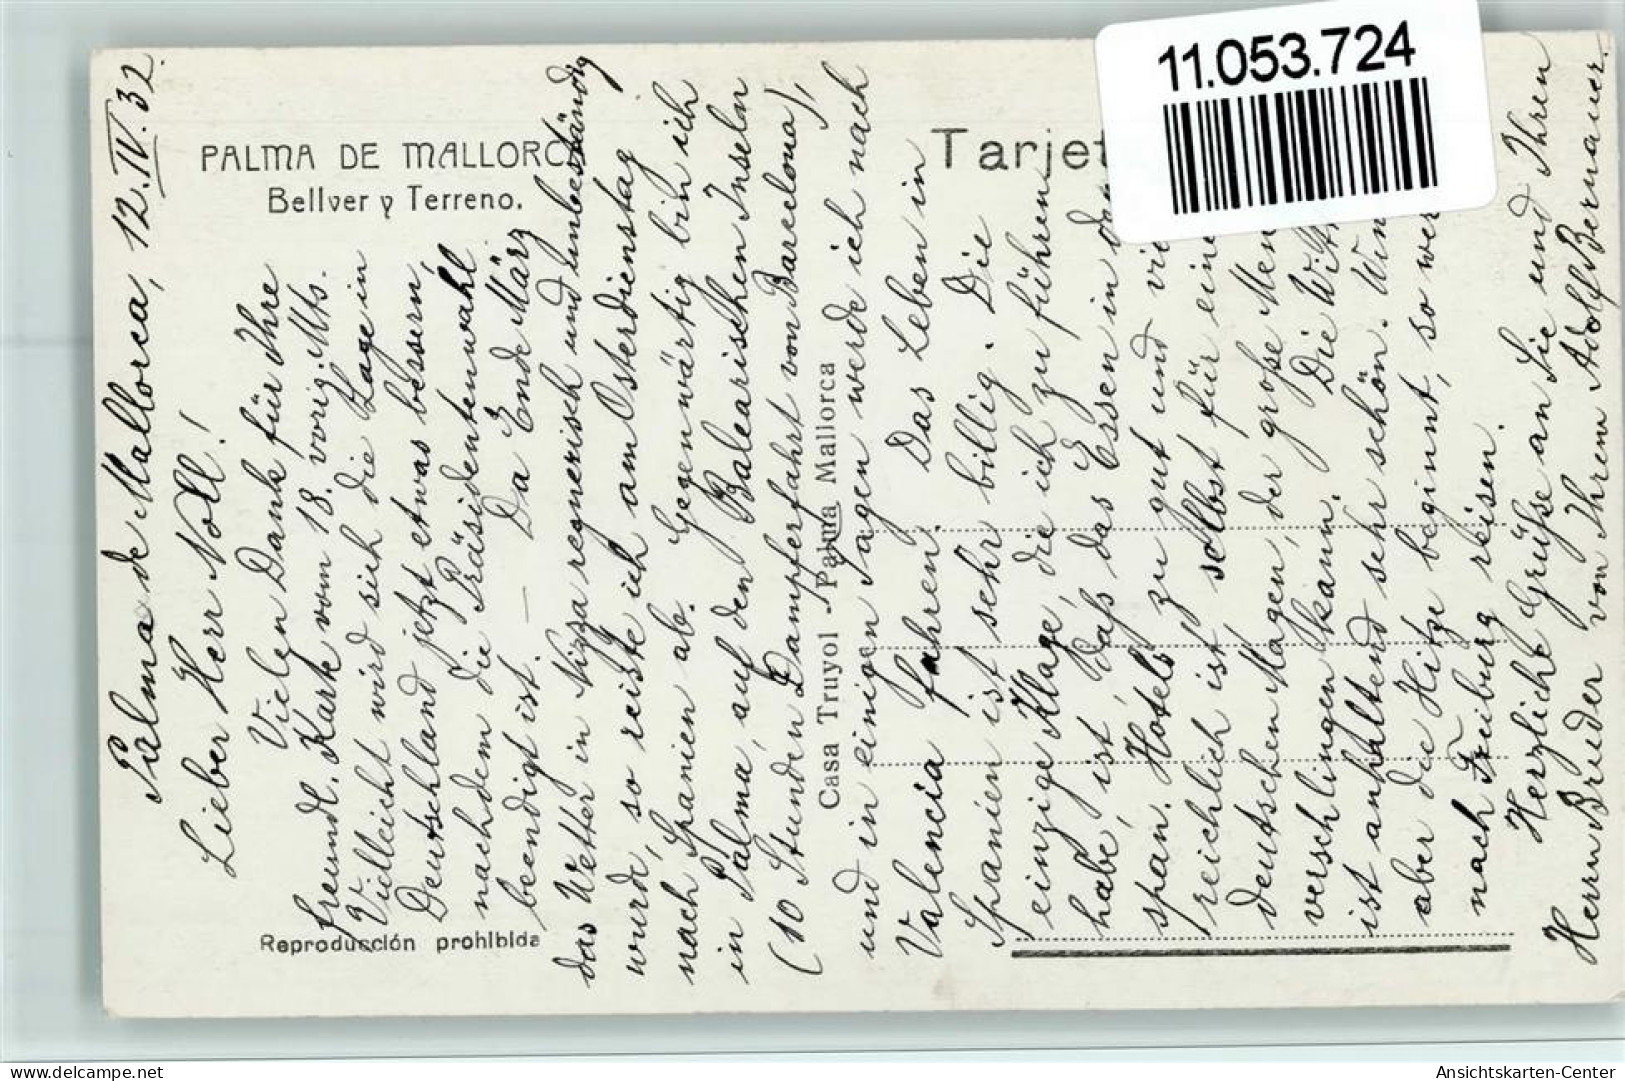 11.053.724
PALMA DE MALLORC
Bellver y Terreno.
Tarjet
Casa Truyol - Palma Mallorca
Reproducción prohibida
Palma de Mallorca, 12.IV.32.
Lieber Herr Noll!
Vielen Dank für Ihre
freundl. Karte vom 18. vorig. Mts.
Vielleicht wird sich die Lage in
Deutschland jetzt etwas bessern,
nachdem die Präsidentenwahl
beendigt ist. — Da Ende März
das Wetter in Nizza regnerisch und unbeständig
wurde, so reiste ich am Osterdienstag
nach Spanien ab. Gegenwärtig bin ich
in Palma, auf den Balearischen Inseln
(10 Stunden Dampferfahrt von Barcelona),
und in einigen Tagen werde ich nach
Valencia fahren. Das Leben in
Spanien ist sehr billig. Die
einzige Klage, die ich zu führen
habe, ist, daß das Essen in den
span. Hotels zu gut und viel
reichlich ist, selbst für eine
deutschen Magen, der große Men
verschlingen kann. Die Witt
ist anhaltend sehr schön. Wen
aber die Hitze beginnt, so wer
nach Freiburg reisen.
Herzliche Grüße an Sie und Ihren
Herrn Bruder von Ihrem Adolf Bernauer.
www.oldthing.net
Ansichtskarten-Center